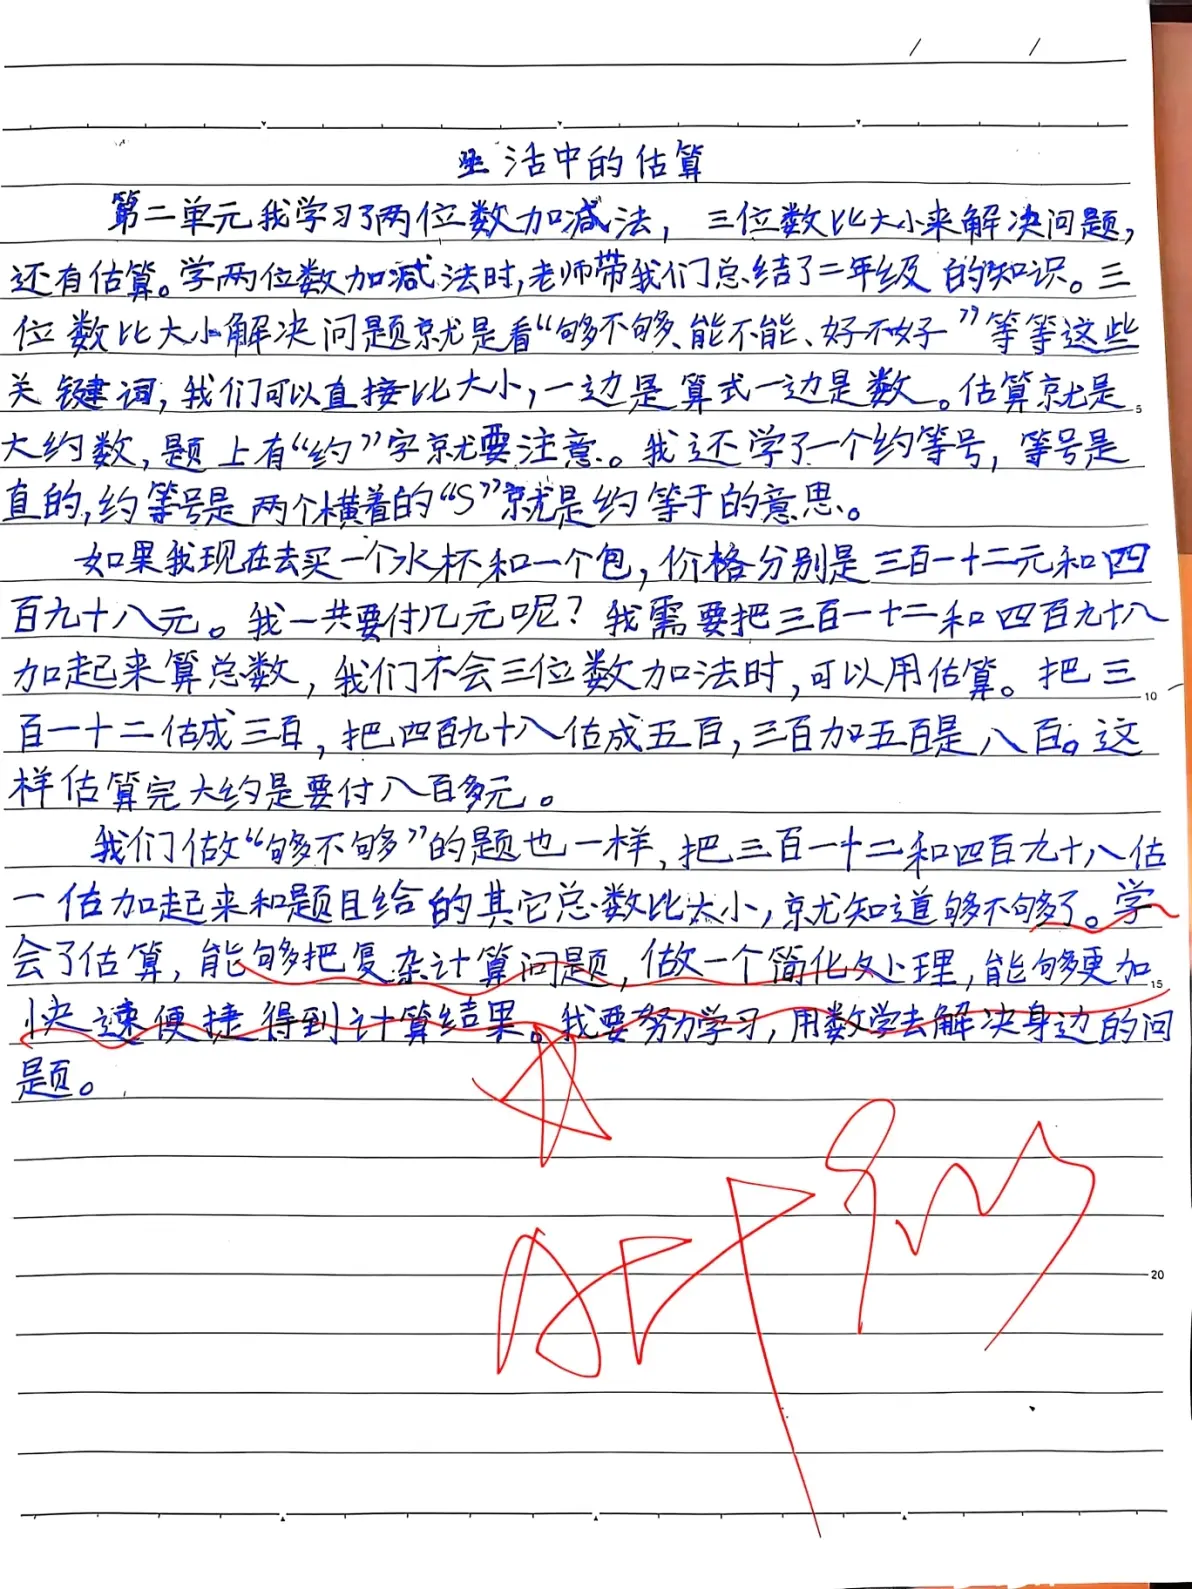 生活中的估算
第二单元我学习了两位数加减法，三位数比大小来解决问题，
还有估算。学两位数加减法时，老师带我们总结了二年级的知识。三
位数比大小解决问题就是看“够不够、能不能、好不好”等等这些
关键词，我们可以直接比大小，一边是算式一边是数。估算就是
大约数，题上有“约”字就要注意。我还学了一个约等号，等号是
直的，约等号是两个横着的“S”就是约等于的意思。
如果我现在去买一个水杯和一个包，价格分别是三百一十二元和四
百九十八元。我一共要付几元呢？我需要把三百一十二和四百九十八
加起来算总数，我们不会三位数加法时，可以用估算。把三
百一十二估成三百，把四百九十八估成五百，三百加五百是八百。这
样估算完大约是要付八百多元。
我们做“够不够”的题也一样，把三百一十二和四百九十八估
一估加起来和题目给的其它总数比大小，就知道够不够了。学
会了估算，能够把复杂计算问题，做一个简化处理，能够更加
快速便捷得到计算结果。我要努力学习，用数学去解决身边的问
题。
5
10
15
20